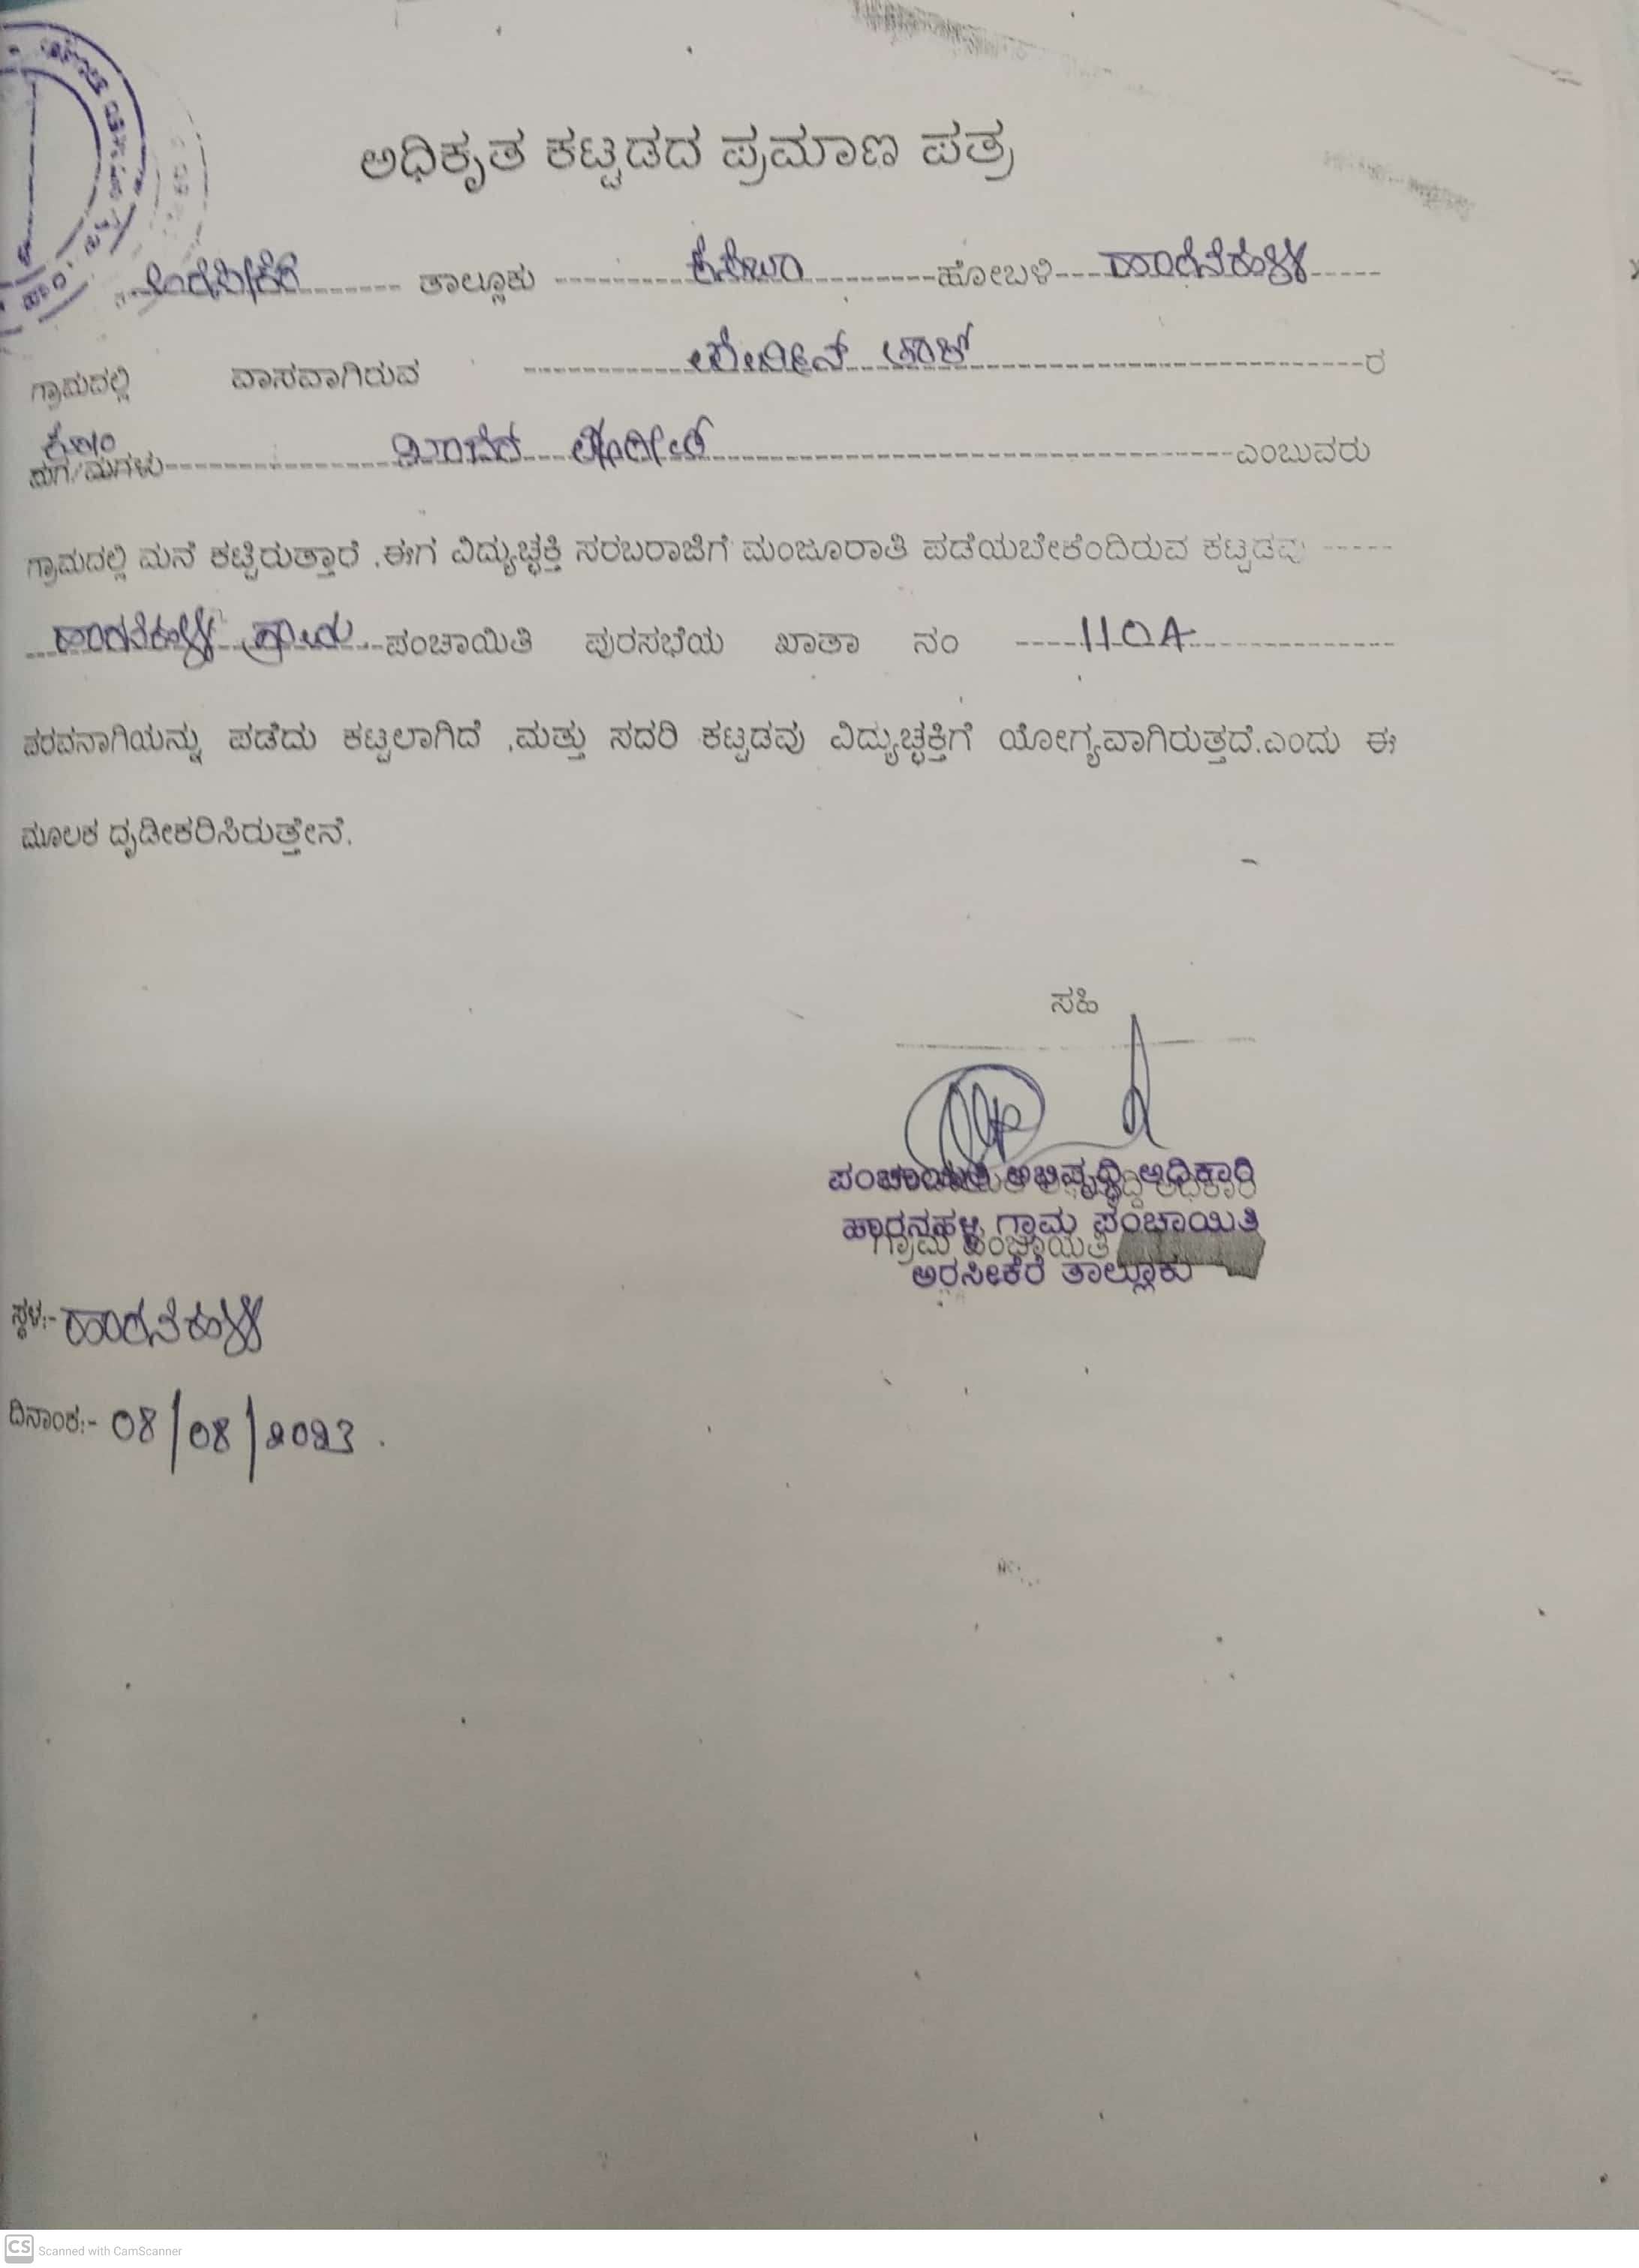 ಅಧಿಕೃತ ಕಟ್ಟಡದ ಪ್ರಮಾಣ ಪತ್ರ
ತಾಲ್ಲೂಕು ಕಸಬಾ ಹೋಬಳಿ ಹಾರನಹಳ್ಳಿ
ಗ್ರಾಮದಲ್ಲಿ ವಾಸವಾಗಿರುವ ರ
ಮಗ/ಮಗಳು ಎಂಬುವರು
ಗ್ರಾಮದಲ್ಲಿ ಮನೆ ಕಟ್ಟಿರುತ್ತಾರೆ .ಈಗ ವಿದ್ಯುಚ್ಛಕ್ತಿ ಸರಬರಾಜಿಗೆ ಮಂಜೂರಾತಿ ಪಡೆಯಬೇಕೆಂದಿರುವ ಕಟ್ಟಡವು
ಹಾರನಹಳ್ಳಿ ಗ್ರಾಮ ಪಂಚಾಯಿತಿ ಪುರಸಭೆಯ ಖಾತಾ ನಂ 110A
ಪರವನಾಗಿಯನ್ನು ಪಡೆದು ಕಟ್ಟಲಾಗಿದೆ ,ಮತ್ತು ಸದರಿ ಕಟ್ಟಡವು ವಿದ್ಯುಚ್ಛಕ್ತಿಗೆ ಯೋಗ್ಯವಾಗಿರುತ್ತದೆ.ಎಂದು ಈ
ಮೂಲಕ ದೃಡೀಕರಿಸಿರುತ್ತೇನೆ.
ಸಹಿ
ಪಂಚಾಯಿತಿ ಅಭಿವೃದ್ಧಿ ಅಧಿಕಾರಿ
ಹಾರನಹಳ್ಳಿ ಗ್ರಾಮ ಪಂಚಾಯಿತಿ
ಗ್ರಾಮ ಪಂಚಾಯಿತಿ
ಅರಸೀಕೆರೆ ತಾಲ್ಲೂಕು
ಸ್ಥಳ:- ಹಾರನಹಳ್ಳಿ
ದಿನಾಂಕ:- 08/08/2023.
CS Scanned with CamScanner